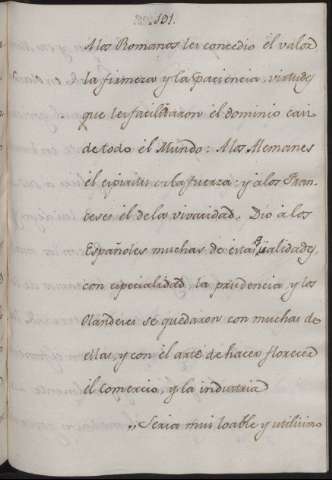 101.
A los Romanos les concedio el valor
la firmeza y la paciencia, virtudes
que les facilitaron el dominio casi
de todo el Mundo: A los Alemanes
el espiritu de la fuerza: y a los Fran-
ceses él de la vivacidad. Dió á los
Españoles muchas de estas qualidades,
con especialidad la prudencia y los
Olandeses se quedaron con muchas de
ellas, y con el arte de hacer florecer
el Comercio, y la industria
,, Seria mui loable y utilisimo